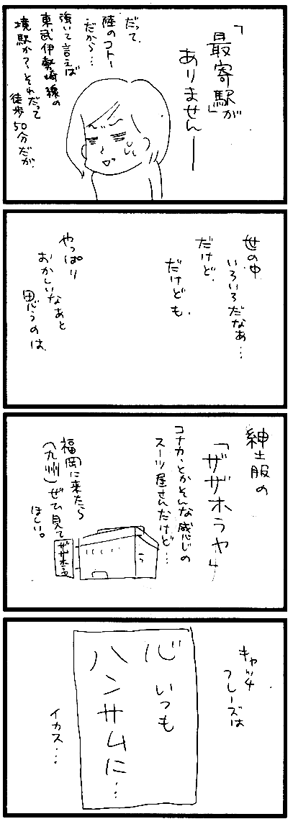 「最寄駅が」
ありません──
だって、
陸のコトー
だから…
強いて言えば
東武伊勢崎線の
境駅かな、それだって
徒歩50分だが、
世の中
いろいろだなあ…
だけど、
だけども、
やっぱり
おかしいなあと
思うのは、
紳士服の
「ザザホラヤ」
コナカとかそんな感じの
スーツ屋さんだけど…
福岡に来たら
(九州)ぜひ見て
ほしい。
ザザホラヤ
キャッチ
フレーズは
心いつも
ハンサムに…
イカス…